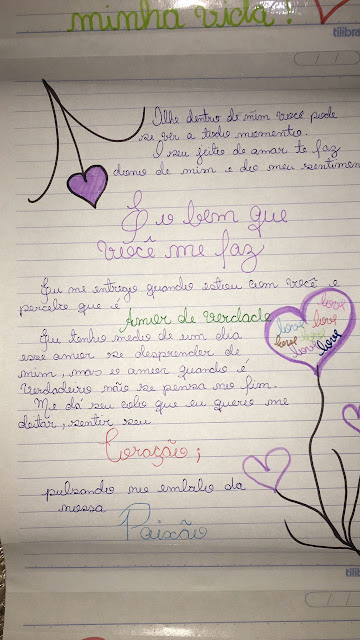 minha vida!
tilibra
Olhe dentro de mim você pode
se ver a todo momento.
O seu jeito de amar te faz
dono de mim e deo meu sentimen
É o bem que
você me faz
Eu me entrego quando estou com você e
percebo que é
Amor de verdade
Eu tenho medo de um dia
esse amor se desprender de
mim, mas o amor quando é
verdadeiro não se pensa no fim.
Me dá seu colo que eu quero me
deitar, sentir seu
Coração;
pulsando no embalo da
nossa
Paixão
love
love
love
love
love
love
love
tili